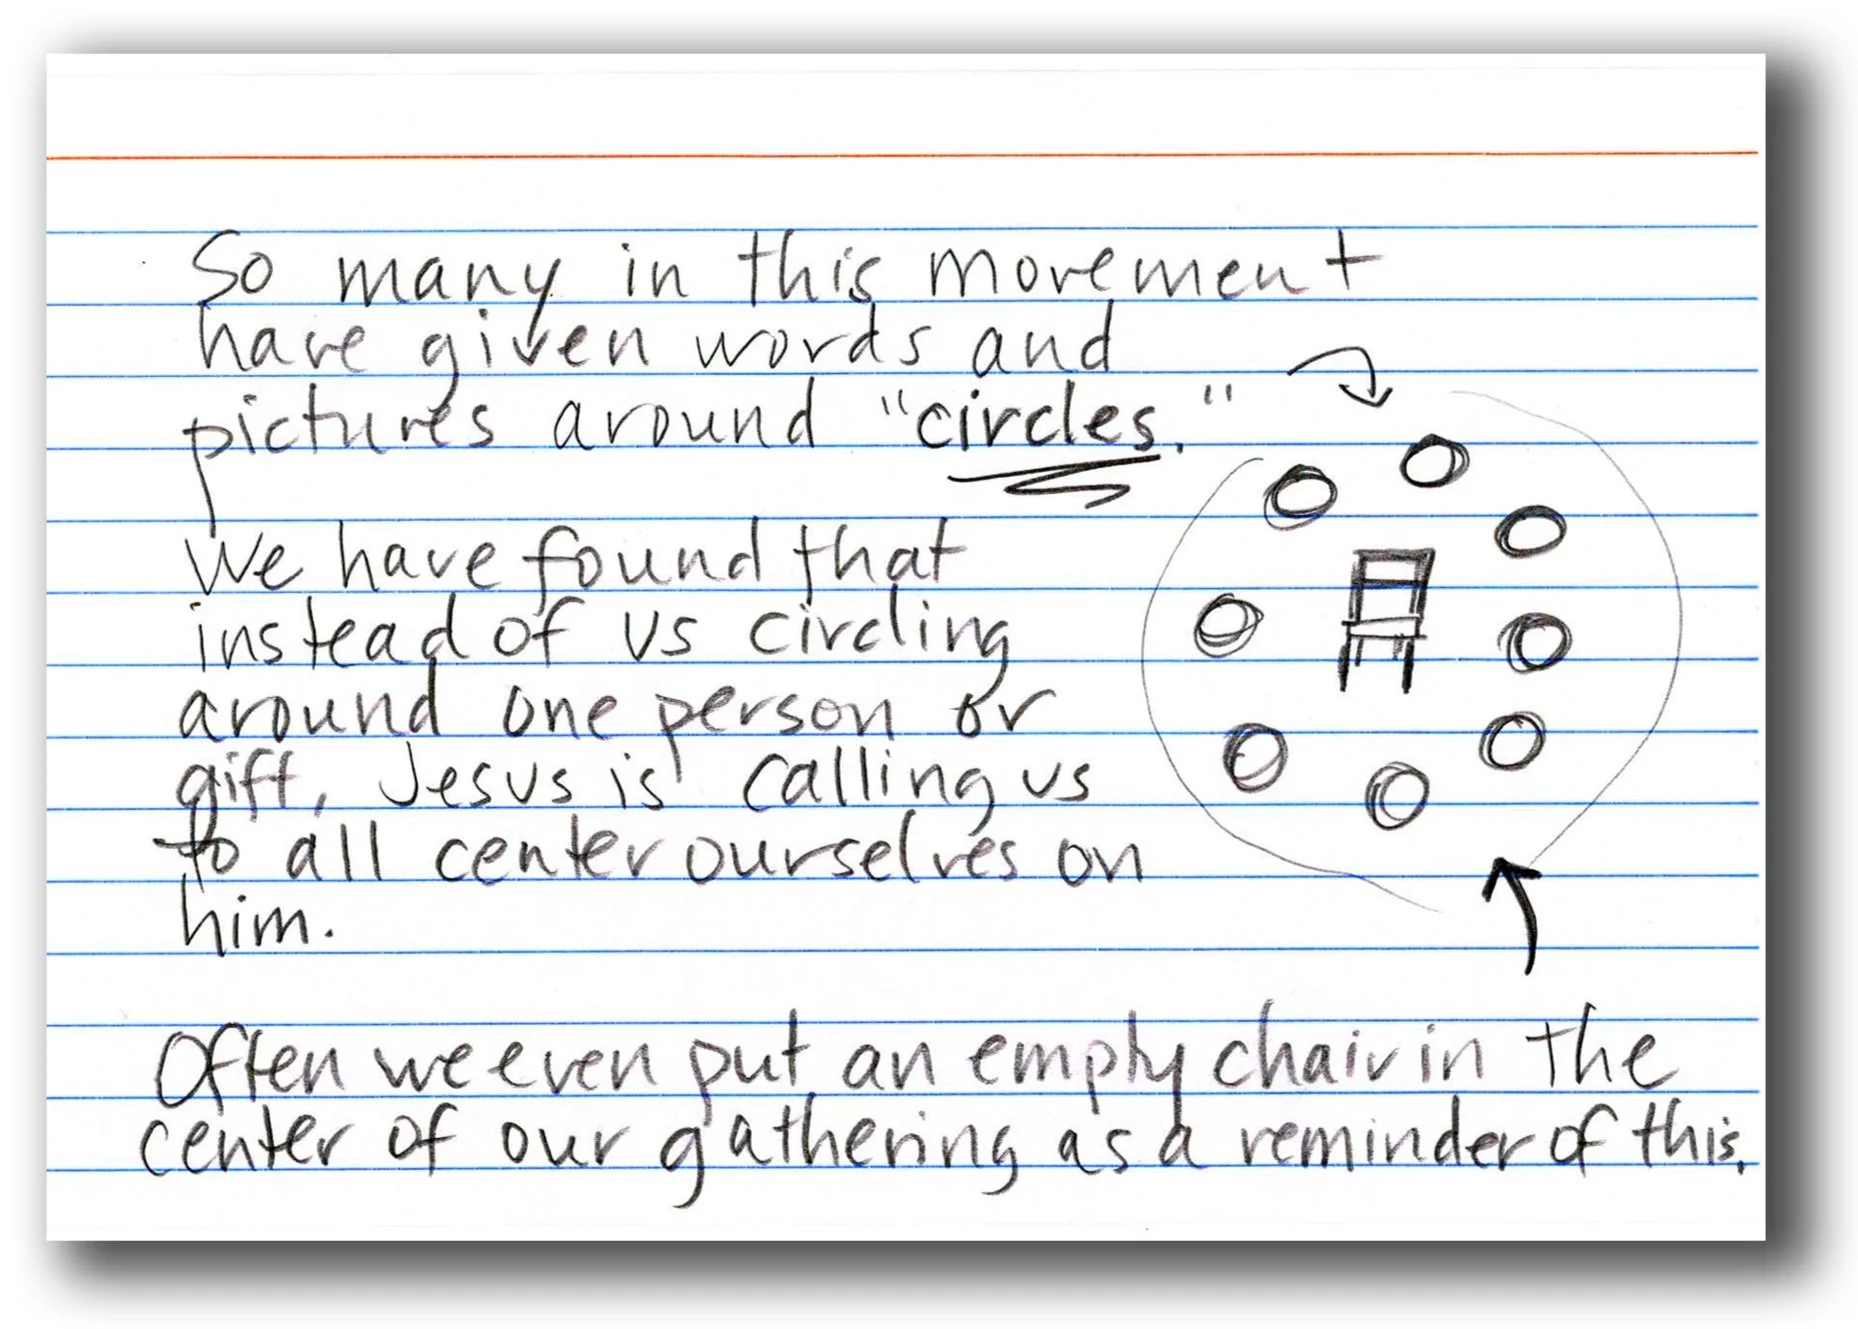 So many in this movement
have given words and
pictures around "circles."
We have found that
instead of us circling
around one person or
gift, Jesus is calling us
to all center ourselves on
him.
Often we even put an empty chair in the
center of our gathering as a reminder of this.